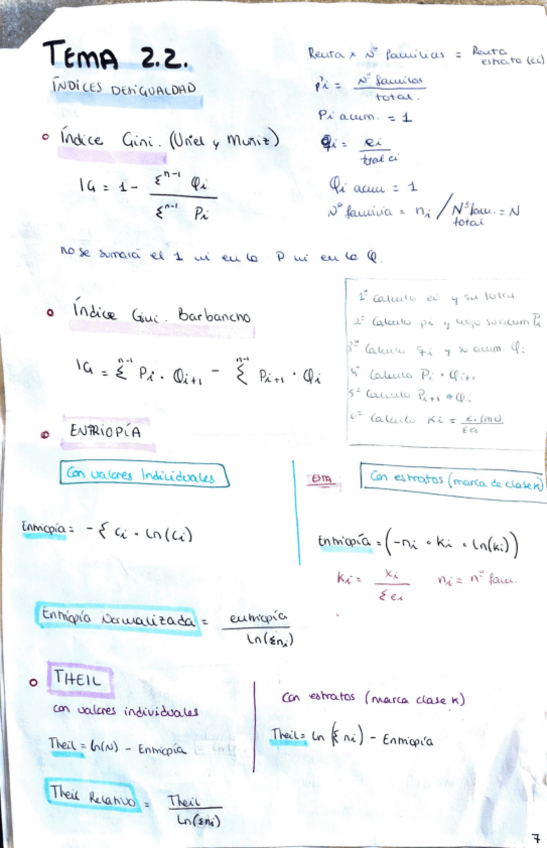 TEMA 2.2.
ÍNDICES DESIGUALDAD
Renta x Nº familias = Renta estrato (ei)
pi = Nº familias / total.
Pi acum. = 1
qi = ei / total ei
Qi acum = 1
Nº familia = ni / Nº fam. total = N
Índice Gini. (Uriel y Muñiz)
IG = 1 - Σⁿ⁻¹ Qi / Σⁿ⁻¹ Pi
no se sumará el 1 ni en la P ni en la Q.
Índice Gini. Barbancho
IG = Σⁿ⁻¹ Pi · Qi+1 - Σⁿ⁻¹ Pi+1 · Qi
1º Calculo ei y su total
2º Calculo pi y luego su acum Pi
3º Calculo qi y su acum. Qi
4º Calculo Pi · Qi+1
5º Calculo Pi+1 · Qi
6º Calculo Ki =
ENTROPÍA
Con valores Individuales
Con estratos (marca de clase K)
Entropía = - Σ Ci · Ln(Ci)
Entropía = (-ni · Ki · Ln(ki))
Ki = xi / Σei ni = nº fam.
Entropía Normalizada = entropía / Ln(Σni)
THEIL
con valores individuales
Con estratos (marca clase K)
Theil = Ln(N) - Entropía
Theil = Ln (Σ ni) - Entropía
Theil Relativo = Theil / Ln(Σni)
7